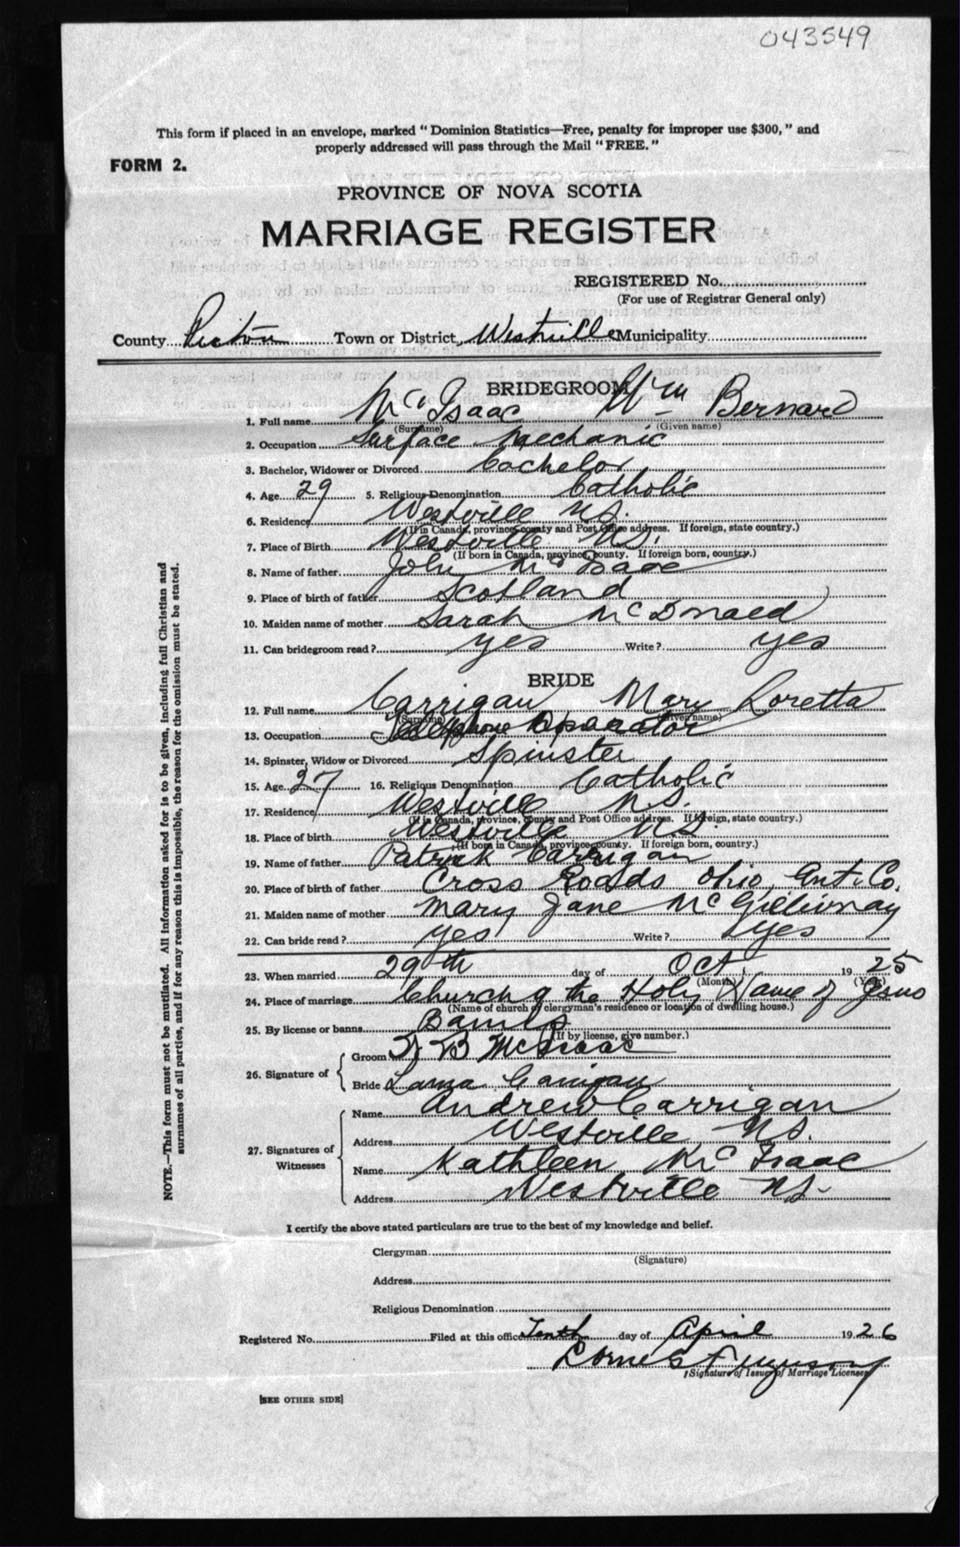 043549
This form if placed in an envelope, marked "Dominion Statistics—Free, penalty for improper use $300," and
properly addressed will pass through the Mail "FREE."
FORM 2.
PROVINCE OF NOVA SCOTIA
MARRIAGE REGISTER
REGISTERED No.
(For use of Registrar General only)
County Pictou Town or District Westville Municipality
BRIDEGROOM
1. Full name McIsaac Wm Bernard
(Surname) (Given name)
2. Occupation Surface Mechanic
3. Bachelor, Widower or Divorced Bachelor
4. Age 29 5. Religious Denomination Catholic
6. Residence Westville N.S.
(If in Canada, province, county and Post Office address. If foreign, state country.)
7. Place of Birth Westville N.S.
(If born in Canada, province, county. If foreign born, country.)
8. Name of father John McIsaac
9. Place of birth of father Scotland
10. Maiden name of mother Sarah McDonald
11. Can bridegroom read? yes Write? yes
BRIDE
12. Full name Carrigan Mary Loretta
(Surname) (Given name)
13. Occupation Telephone Oparator
14. Spinster, Widow or Divorced Spinster
15. Age 27 16. Religious Denomination Catholic
17. Residence Westville N.S.
(If in Canada, province, county and Post Office address. If foreign, state country.)
18. Place of birth Westville N.S.
(If born in Canada, province, county. If foreign born, country.)
19. Name of father Patrick Carrigan
20. Place of birth of father Cross Roads Ohio, Ant. Co.
21. Maiden name of mother Mary Jane McGillivray
22. Can bride read? yes Write? yes
23. When married 29th day of Oct 1925
(Month) (Year)
24. Place of marriage Church of the Holy Name of Jesus
(Name of church or clergyman's residence or location of dwelling house.)
25. By license or banns Banns
(If by license, give number.)
26. Signature of
Groom B McIsaac
Bride Carrigan
27. Signatures of Witnesses
Name Andrew Carrigan
Address Westville N.S.
Name Kathleen McIsaac
Address Westville N.S.
NOTE.—This form must not be mutilated. All information asked for is to be given, including full Christian and
surnames of all parties, and if for any reason this is impossible, the reason for the omission must be stated.
I certify the above stated particulars are true to the best of my knowledge and belief.
Clergyman
(Signature)
Address
Religious Denomination
Registered No. Filed at this office Tenth day of April 1926
Ferguson
(Signature of Issuer of Marriage Licenses)
[SEE OTHER SIDE]